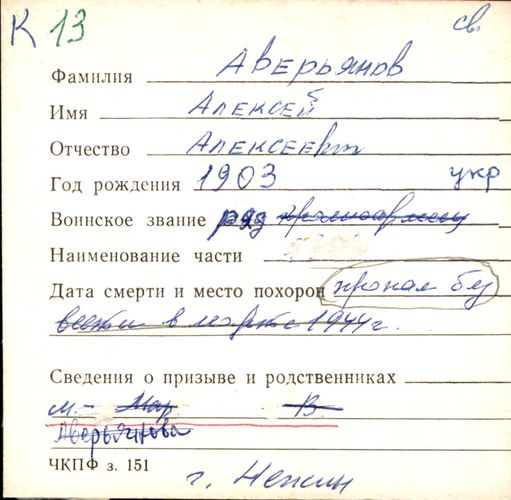 К 13 св.
Фамилия Аверьянов
Имя Алексей
Отчество Алексеевич
Год рождения 1903 укр
Воинское звание ряд красноармеец
Наименование части
Дата смерти и место похорон пропал без
вести в марте 1944 г.
Сведения о призыве и родственниках
м.- В
Аверьянова
ЧКПФ з. 151
г. Нежин